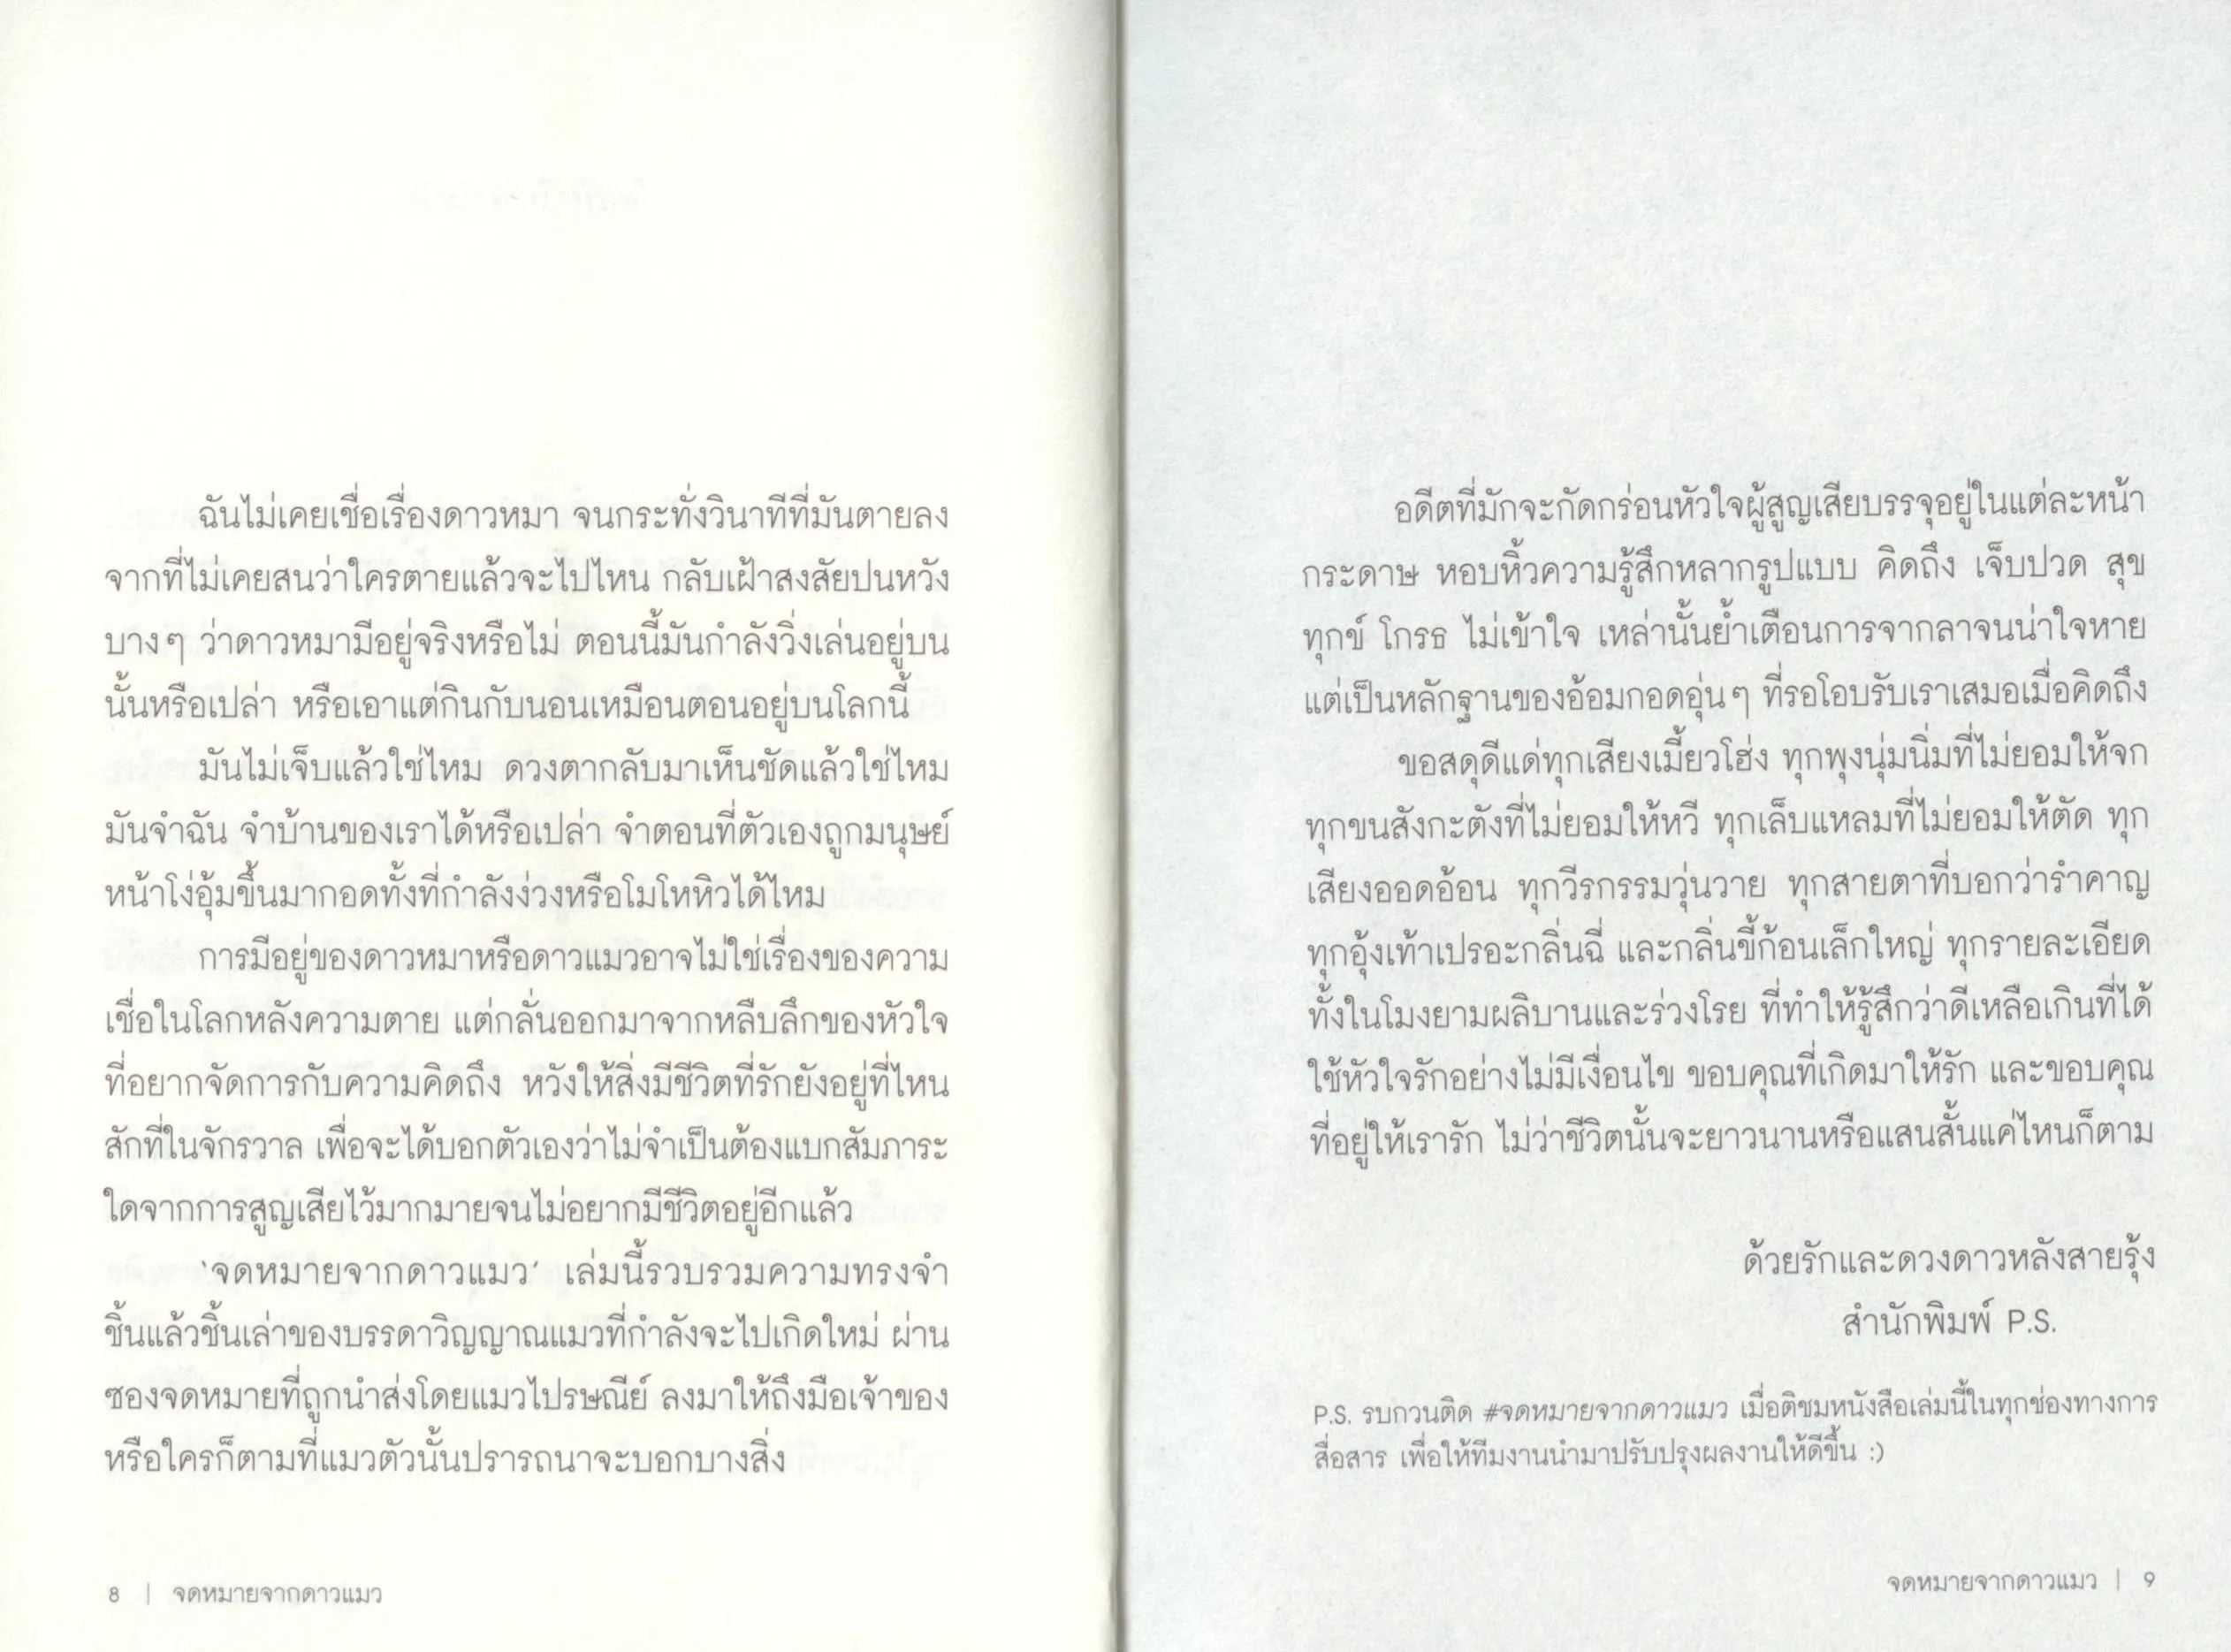 ฉันไม่เคยเชื่อเรื่องดาวหมา จนกระทั่งวินาทีที่มันตายลง
จากที่ไม่เคยสนว่าใครตายแล้วจะไปไหน กลับเฝ้าสงสัยปนหวัง
บางๆ ว่าดาวหมามีอยู่จริงหรือไม่ ตอนนี้มันกำลังวิ่งเล่นอยู่บน
นั้นหรือเปล่า หรือเอาแต่กินกับนอนเหมือนตอนอยู่บนโลกนี้
มันไม่เจ็บแล้วใช่ไหม ดวงตากลับมาเห็นชัดแล้วใช่ไหม
มันจำฉัน จำบ้านของเราได้หรือเปล่า จำตอนที่ตัวเองถูกมนุษย์
หน้าโง่อุ้มขึ้นมากอดทั้งที่กำลังง่วงหรือโมโหหิวได้ไหม
การมีอยู่ของดาวหมาหรือดาวแมวอาจไม่ใช่เรื่องของความ
เชื่อในโลกหลังความตาย แต่กลั่นออกมาจากหลืบลึกของหัวใจ
ที่อยากจัดการกับความคิดถึง หวังให้สิ่งมีชีวิตที่รักยังอยู่ที่ไหน
สักที่ในจักรวาล เพื่อจะได้บอกตัวเองว่าไม่จำเป็นต้องแบกสัมภาระ
ใดจากการสูญเสียไว้มากมายจนไม่อยากมีชีวิตอยู่อีกแล้ว
'จดหมายจากดาวแมว' เล่มนี้รวบรวมความทรงจำ
ชิ้นแล้วชิ้นเล่าของบรรดาวิญญาณแมวที่กำลังจะไปเกิดใหม่ ผ่าน
ซองจดหมายที่ถูกนำส่งโดยแมวไปรษณีย์ ลงมาให้ถึงมือเจ้าของ
หรือใครก็ตามที่แมวตัวนั้นปรารถนาจะบอกบางสิ่ง
8 | จดหมายจากดาวแมว
อดีตที่มักจะกัดกร่อนหัวใจผู้สูญเสียบรรจุอยู่ในแต่ละหน้า
กระดาษ หอบหิ้วความรู้สึกหลากรูปแบบ คิดถึง เจ็บปวด สุข
ทุกข์ โกรธ ไม่เข้าใจ เหล่านั้นย้ำเตือนการจากลาจนน่าใจหาย
แต่เป็นหลักฐานของอ้อมกอดอุ่นๆ ที่รอโอบรับเราเสมอเมื่อคิดถึง
ขอสดุดีแด่ทุกเสียงเมี้ยวโฮ่ง ทุกพุงนุ่มนิ่มที่ไม่ยอมให้จก
ทุกขนสังกะตังที่ไม่ยอมให้หวี ทุกเล็บแหลมที่ไม่ยอมให้ตัด ทุก
เสียงออดอ้อน ทุกวีรกรรมวุ่นวาย ทุกสายตาที่บอกว่ารำคาญ
ทุกอุ้งเท้าเปรอะกลิ่นฉี่ และกลิ่นขี้ก้อนเล็กใหญ่ ทุกรายละเอียด
ทั้งในโมงยามผลิบานและร่วงโรย ที่ทำให้รู้สึกว่าดีเหลือเกินที่ได้
ใช้หัวใจรักอย่างไม่มีเงื่อนไข ขอบคุณที่เกิดมาให้รัก และขอบคุณ
ที่อยู่ให้เรารัก ไม่ว่าชีวิตนั้นจะยาวนานหรือแสนสั้นแค่ไหนก็ตาม
ด้วยรักและดวงดาวหลังสายรุ้ง
สำนักพิมพ์ P.S.
P.S. รบกวนติด #จดหมายจากดาวแมว เมื่อติชมหนังสือเล่มนี้ในทุกช่องทางการ
สื่อสาร เพื่อให้ทีมงานนำมาปรับปรุงผลงานให้ดีขึ้น :)
จดหมายจากดาวแมว | 9